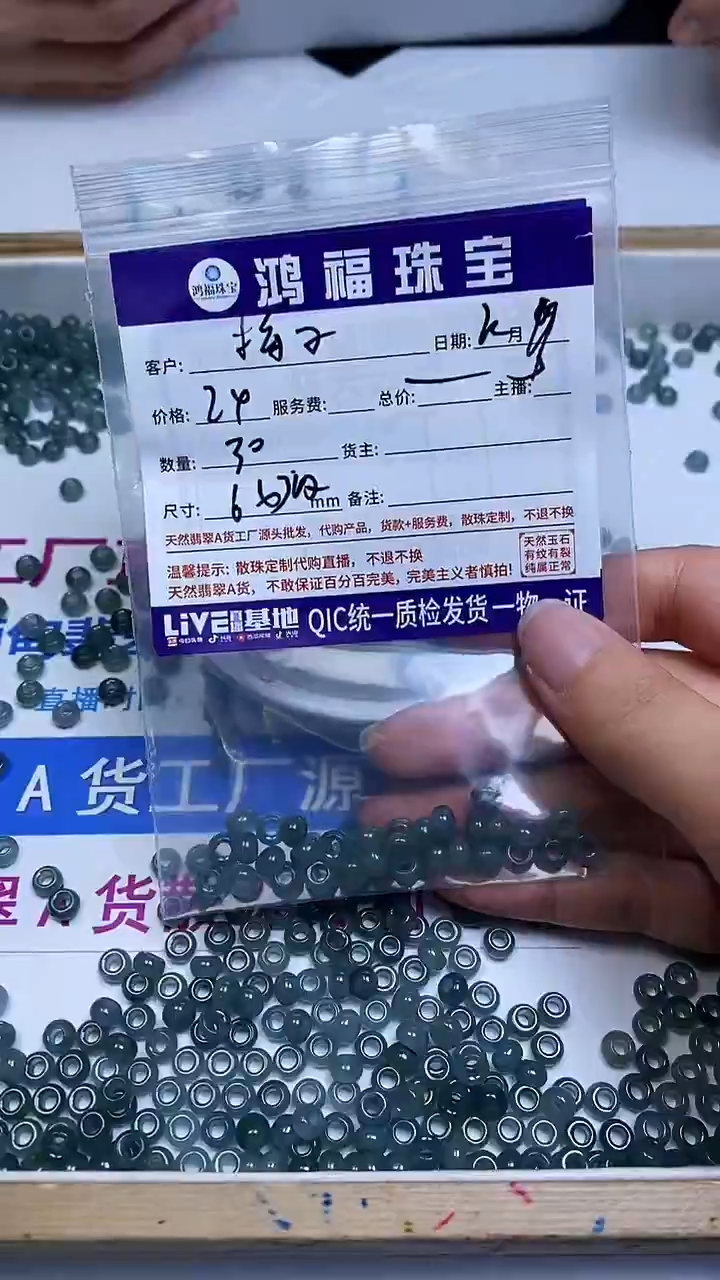 鸿福珠宝
鸿福珠宝
客户: 梅子 日期: 月
价格: 24 服务费: 总价: 主播:
数量: 30 货主:
尺寸: 6 mm 备注:
天然翡翠A货工厂源头批发，代购产品，货款+服务费，散珠定制，不退不换
温馨提示: 散珠定制代购直播，不退不换
天然翡翠A货，不敢保证百分百完美，完美主义者慎拍!
天然玉石
有纹有裂
纯属正常
LiVE直播基地 QIC统一质检发货一物一证
工厂
直播时
A货工厂源
翠A货散